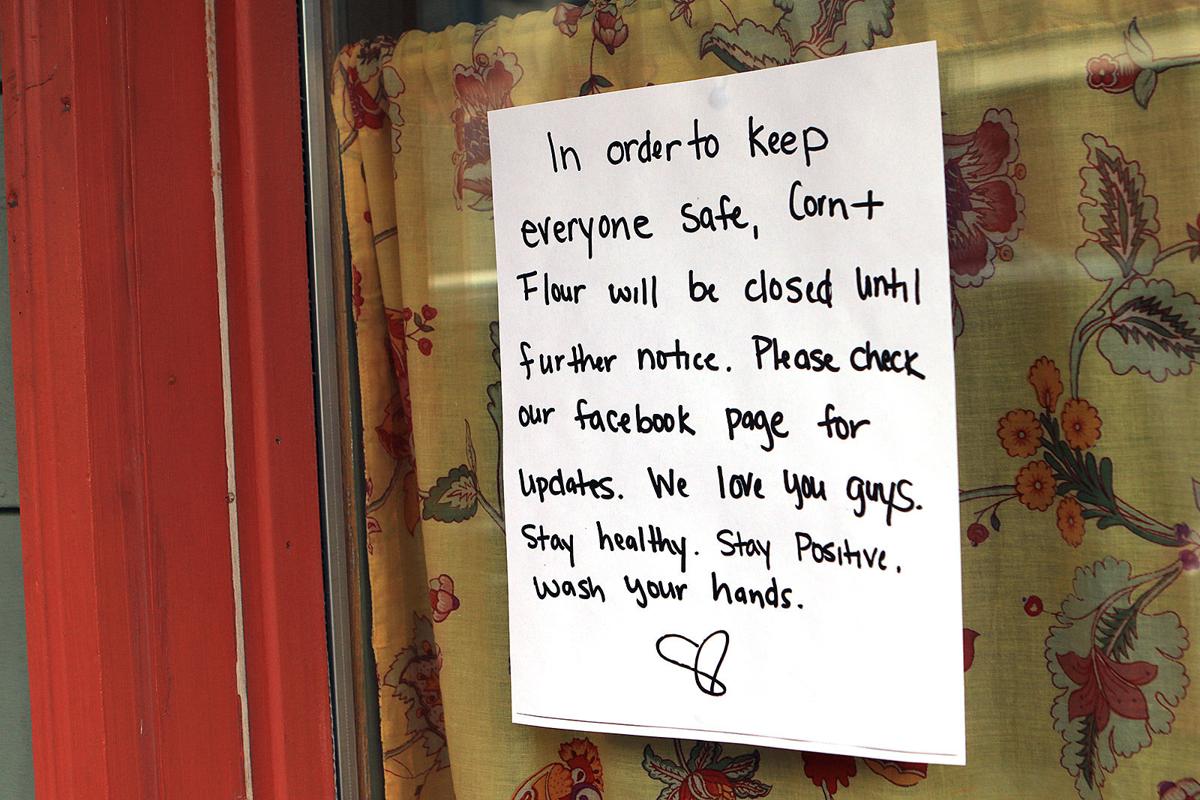 In order to keep
everyone safe, Corn+
Flour will be closed until
further notice. Please check
our facebook page for
updates. We love you guys.
Stay healthy. Stay Positive.
Wash your hands.